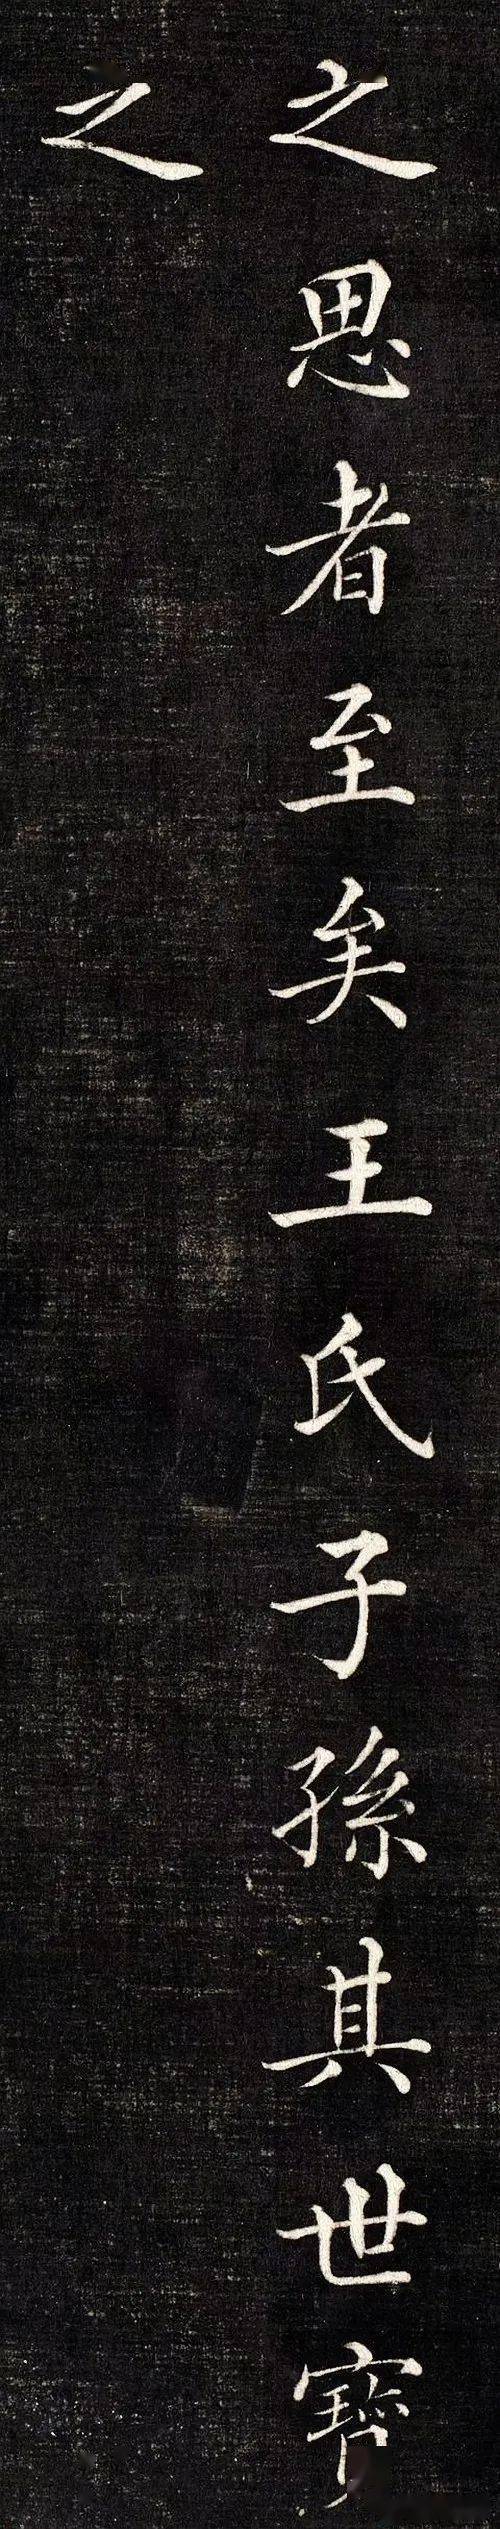 之思者至矣王氏子孫其世寶
之